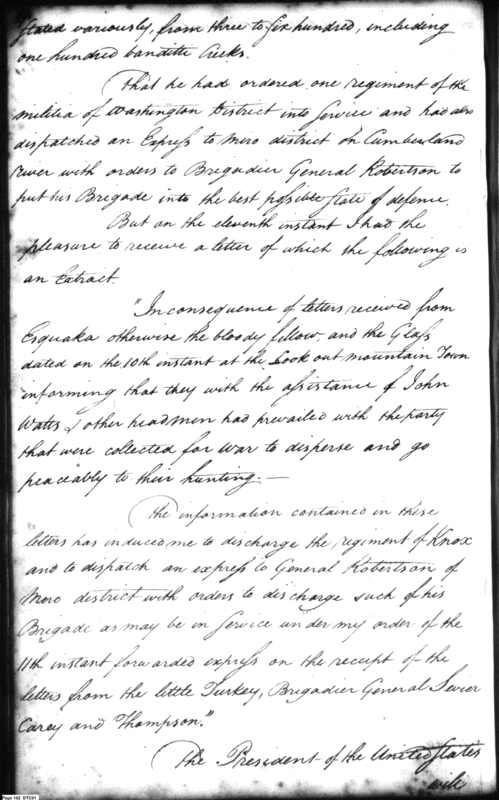 stated variously, from three to six hundred, including
one hundred banditti Creeks.
That he had ordered one regiment of the
militia of Washington District into service and had also
dispatched an Express to Mero district on Cumberland
river with orders to Brigadier General Robertson to
put his Brigade into the best possible state of defence.
But on the eleventh instant I had the
pleasure to receive a letter of which the following is
an Extract.
"In consequence of letters received from
Esquaka otherwise the bloody fellow, and the Glass
dated on the 10th instant at the Look out mountain Town
informing that they with the assistance of John
Watts & other head men had prevailed with the party
that were collected for war to disperse and go
peaceably to their hunting.—
The information contained in these
letters has induced me to discharge the regiment of Knox
and to dispatch an express to General Robertson of
Mero district with orders to discharge such of his
Brigade as may be in Service under my order of the
11th instant forwarded express on the receipt of the
letters from the little Turkey, Brigadier General Sevier
Carey and Thompson."
The President of the United States
will
Page 162 DTC01